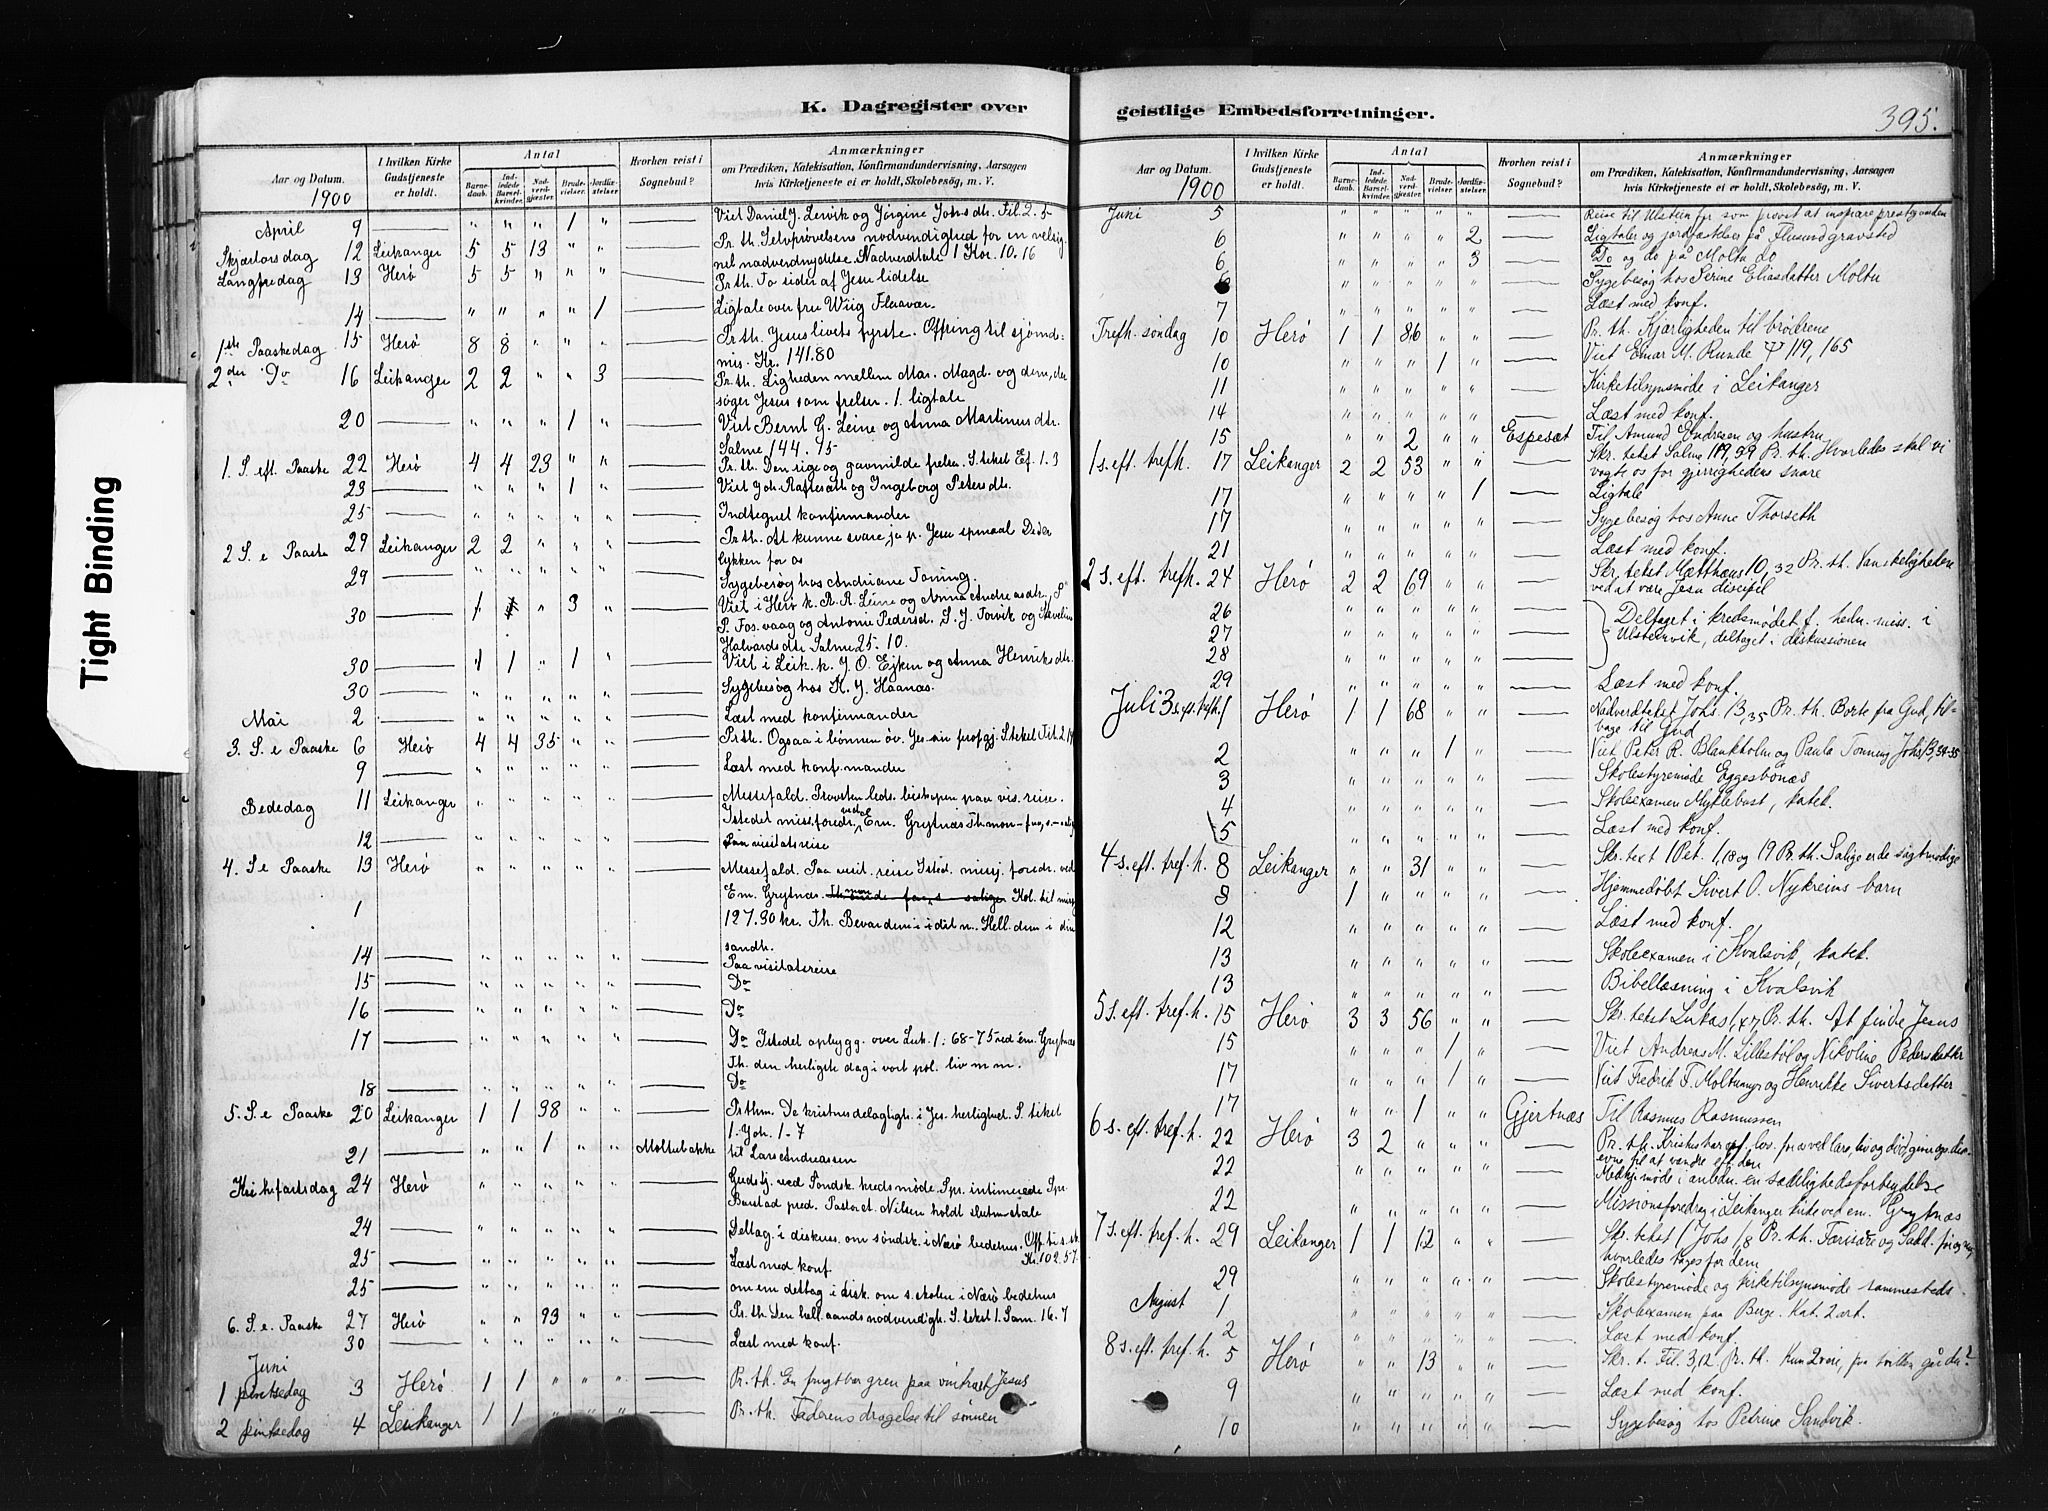 K. Dagregister over
geistlige Embedsforretninger.
395.
Tight Binding
Aar og Datum. 1900
I hvilken Kirke Gudstjeneste er holdt.
Antal
Barnedaab. Indledede Barselkvinder. Nadverdgjæster. Brudevielser. Jordfæstelser.
Hvorhen reist i Sognebud?
Anmærkninger
om Prædiken, Katekisation, Konfirmandundervisning, Aarsagen
hvis Kirketjeneste ei er holdt, Skolebesøg, m. V.
April 9 — " " " 1 " — Viet Daniel J. Lervik og Jørgine Johs dtr. Fil. 2. 5
Skjærtorsdag 12 Leikanger 5 5 13 " " — Pr. th. Selvprøvelsens nødvendighed for en velsig
nel nadverdnydelse. Nadverdtale 1 Kor. 10. 16
Langfredag 13 Herø 5 5 " " " — Pr th. To sider af Jesu lidelse
14 — " " " " 1 — Ligtale over fru Wiig Flaavær
1ste Paaskedag 15 Herø 8 8 " " " — Pr th. Jesus livets fyrste. Offring til sjømds
mis. Kr. 141.80
2den Do 16 Leikanger 2 2 " " 3 — Pr. th. Ligheden mellem Mar. Magd. og dem, der
søger Jesus som frelser. 1 ligtale
20 — " " " 1 " — Viet Bernt G. Leine og Anna Martinus dtr.
Salme 144. 15
1. S. eft. Paaske 22 Herø 4 4 23 " " — Pr. th. Den rige og gavmilde frelser. S. tekst Ef. 1. 3
23 — " " " 1 " — Viet Joh. Raftesæth og Ingeborg Peters dtr.
25 — " " " " " — Indtegnet konfirmander
2 S. e Paaske 29 Leikanger 2 2 " " " — Pr th. At kunne svare ja p. Jesu spmaal
lykken for os
29 — " " " " " — Sygebesøg hos Andriane Toning.
30 — 1 1 " 3 " — Viet i Herø k. R. R. Leine og Anna Andreas dtr.,
P. Fosvaag og Antonie Pedersd. S. J. Torvik og
Halvards dtr Salme 25. 10.
30 — 1 1 " 1 " — Viet i Leik. k. J. O. Ejken og Anna Henriks dtr.
30 — " " " " " — Sygebesøg hos K. J. Haanæs.
Mai 2 — " " " " " — Læst med konfirmander
3. S. e Paaske 6 Herø 4 4 35 " " — Pr th. Ogsaa i bønnen
9 — " " " " " — Læst med konf. mander
Bededag 11 Leikanger " " " " " — Messefald. Provsten leds. biskopen paa vis. reise.
Istedet miss. foredr. ved Em. Grytnæs
12 — " " " " " — Paa visitatsreise
4. S. e Paaske 13 Herø " " " " " — Messefald. Paa visit. reise Isted. misj. foredr. ved
Em. Grytnæs. Kol. til misj
127.30 kr. Th. Bevar dem i i dit n. Hell. dem i din
sandh.
14 — " " " " " — Paa visitatsreise
15 — " " " " " — Do
16 — " " " " " — Do
17 — " " " " " — Do Istedet opbygg. over Luk. 1: 68–75 ved em. Grytnæs
Th. den herligste dag i vort pol. liv m m.
18 — " " " " " — Do
5. S. e Paaske 20 Leikanger 1 1 38 " " — Pr thm. De kristnes delagtigh. i Jes. herlighed. S. tekst
1. Joh. 1–7
21 — " " 1 " " Moltubakke til Lars Andreassen
Kristi fartsdag 24 Herø " " " " " — Gudstj. ved Søndsk. kredsmøde. Spr. intimerede Spr
Burstad pred. Pastor et. Nilsen holdt slutnstale
24 — " " " " " — Deltag. i diskus. om søndsk. i Nærø bedehus. Off. ti s. sk.
Kr. 102.57.
25 — " " " " " — Læst med konf
25 — " " " " " — om em deltag i disk. om s. skolen i Nærø bedehus
6. S. e. Paaske 27 Herø " " 93 " " — Pr. th. Den hell. aands nødvendigh. S. tekst 1. Sam. 16. 7
30 — " " " " " — Læst med konf.
Juni
1 pinsedag 3 Herø 1 1 " " " — Pr. th. En frugtbar gren paa vintræet Jesus
2 pintsedag 4 Leikanger 1 1 " " " — Pr. th. Faderens dragelse til sønnen
Aar og Datum. 1900
I hvilken Kirke Gudstjeneste er holdt.
Antal
Barnedaab. Indledede Barselkvinder. Nadverdgjæster. Brudevielser. Jordfæstelser.
Hvorhen reist i Sognebud?
Anmærkninger
om Prædiken, Katekisation, Konfirmandundervisning, Aarsagen
hvis Kirketjeneste ei er holdt, Skolebesøg, m. V.
Juni 5 " " " " " — Reise til Ulstein for som provst at inspicere prestegaarden
6 " " " " 2 — Ligtaler og jordfæstelser på Flusund gravsted
6 " " " " 3 — Do og do på Moltu do
6 " " " " " — Sygebesøg hos Serine Eliasdatter Moltu
7 " " " " " — Læst med konf.
Trefh. søndag 10 Herø 1 1 86 " " — Pr. th. Kjærligheden til brødrene
10 " " " 1 " — Viet Einar M. Runde Ψ 119, 165
11 " " " " " — Kirketilsynsmøde i Leikanger
14 " " " " " — Læst med konf.
15 " " 2 " " Espesæt Til Amund Endresen og hustru
1 s. eft. trefh. 17 Leikanger 2 2 53 " " — Skr. tekst Salme 119, 29 Pr. th. Hvorledes skal vi
vogte os for gjerrighedens snare
17 " " " " 1 — Ligtale
17 " " " " " — Sygebesøg hos Anne Thorseth
21 " " " " " — Læst med konf.
2 s. eft. trefh. 24 Herø 2 2 69 " " — Skr. tekst Matthæus 10, 32 Pr. th. Vanskeligheden
ved at være Jesu discipel
26 " " " " " — Deltaget i kredsmødet f. hedn. miss. i
27 " " " " " — Ulstenvik, deltaget i diskussionen
28 " " " " " —
29 " " " " " — Læst med konf.
Juli 3 s. eft. trefh. 1 Herø 1 1 68 " " — Nadverdtekst Johs. 13,35 Pr. th. Borte fra Gud, til-
bage til Gud
2 " " " 1 " — Viet Peter R. Blankholm og Paula Tonning Johs 13, 34–35
3 " " " " " — Skolestyremøde Eggesbønæs
4 " " " " " — Skoleexamen Myklebost, katek.
5 " " " " " — Læst med konf.
4 s. eft. tref. h. 8 Leikanger " " 31 " " — Skr. text 1 Pet. 1, 18 og 19 Pr. th. Salige er de sagtmodige
8 1 " " " " — Hjemmedøbt Sivert O. Nykreims barn
12 " " " " " — Læst med konf.
13 " " " " " — Skoleexamen i Kvalsvik, katek.
13 " " " " " — Bibellæsning i Kvalsvik
5 s. eft. tref. h. 15 Herø 3 3 56 " " — Skr. tekst Lukas 1, 47, Pr. th. At finde Jesus
15 " " " 1 " — Viet Andreas M. Lillestøl og Nikoline Pedersdatter
17 " " " 1 " — Viet Fredrik F. Moltumyr og Henrikke Sivertsdatter
17 " " 1 " " Gjertnæs Til Rasmus Rasmussen
6 s. eft. tref. h. 22 Herø 3 2 " " " — Pr. th. Kristus har
evne til at vandre efter den
22 " " " " " — møde i anledn. en sædelighedsforbrydelse
22 " " " " " — Missionsforedrag i Leikanger kirke ved em. Grytnæs
7 s. eft. tref. h. 29 Leikanger 1 1 12 " " — Skr. tekst 1 Johs 1,8 Pr. th. Farisære og Sadd. før og nu,
hvorledes tages for dem
29 " " " " " — Skolestyremøde og kirketilsynsmøde sammesteds
August 1 " " " " " — Skoleexamen paa Berge. Kat. 2 art.
2 " " " " " — Læst med konf.
8 s. eft. tref. h. 5 Herø " " 13 " " — Skr. t. Fil. 3,12. Pr. th. Kun 2 veie, paa hvilken går du?
9 " " " " " — Læst med konf.
10 " " " " " — Sygebesøg hos Petrine Sandvik.